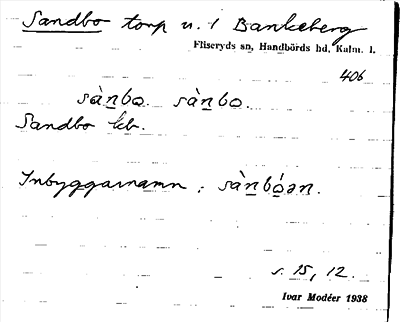 Sandbo torp u. 1 Bankeberg
Fliseryds sn, Handbörds hd, Kalm. l.
406
sàn̲bo̲. sàn̲bo̲.
Sandbo kb.
Inbyggarnamn: sàn̲bó̲an.
s. 15, 12.
Ivar Modéer 1938